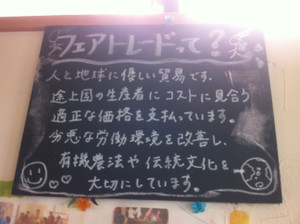 フェアトレードって?
人と地球に優しい貿易です.
途上国の生産者に コストに見合う
適正な価格を支払っています.
劣悪な労働環境を改善し、
有機農法や 伝統文化を
大切にしています。